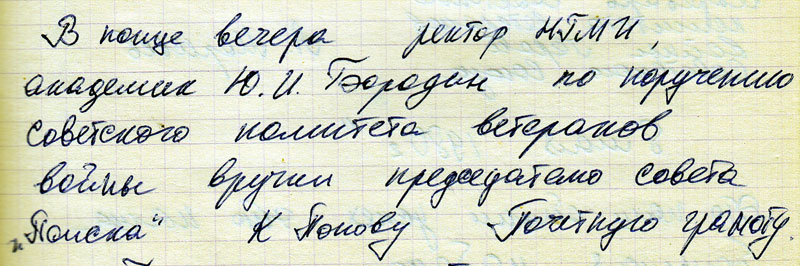 В конце вечера ректор НГМИ,
академик Ю.И. Бородин по поручению
советского комитета ветеранов
войны вручил председателю совета
„Поиска“ К Попову Почетную грамоту.